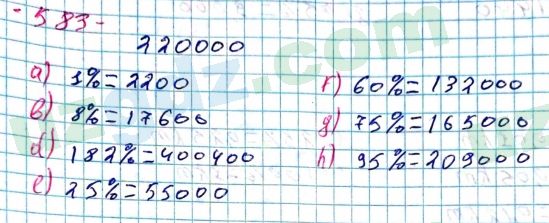 - 583 -
220000
a) 1% = 2200
b) 8% = 17600
d) 182% = 400400
e) 25% = 55000
f) 60% = 132000
g) 75% = 165000
h) 95% = 209000